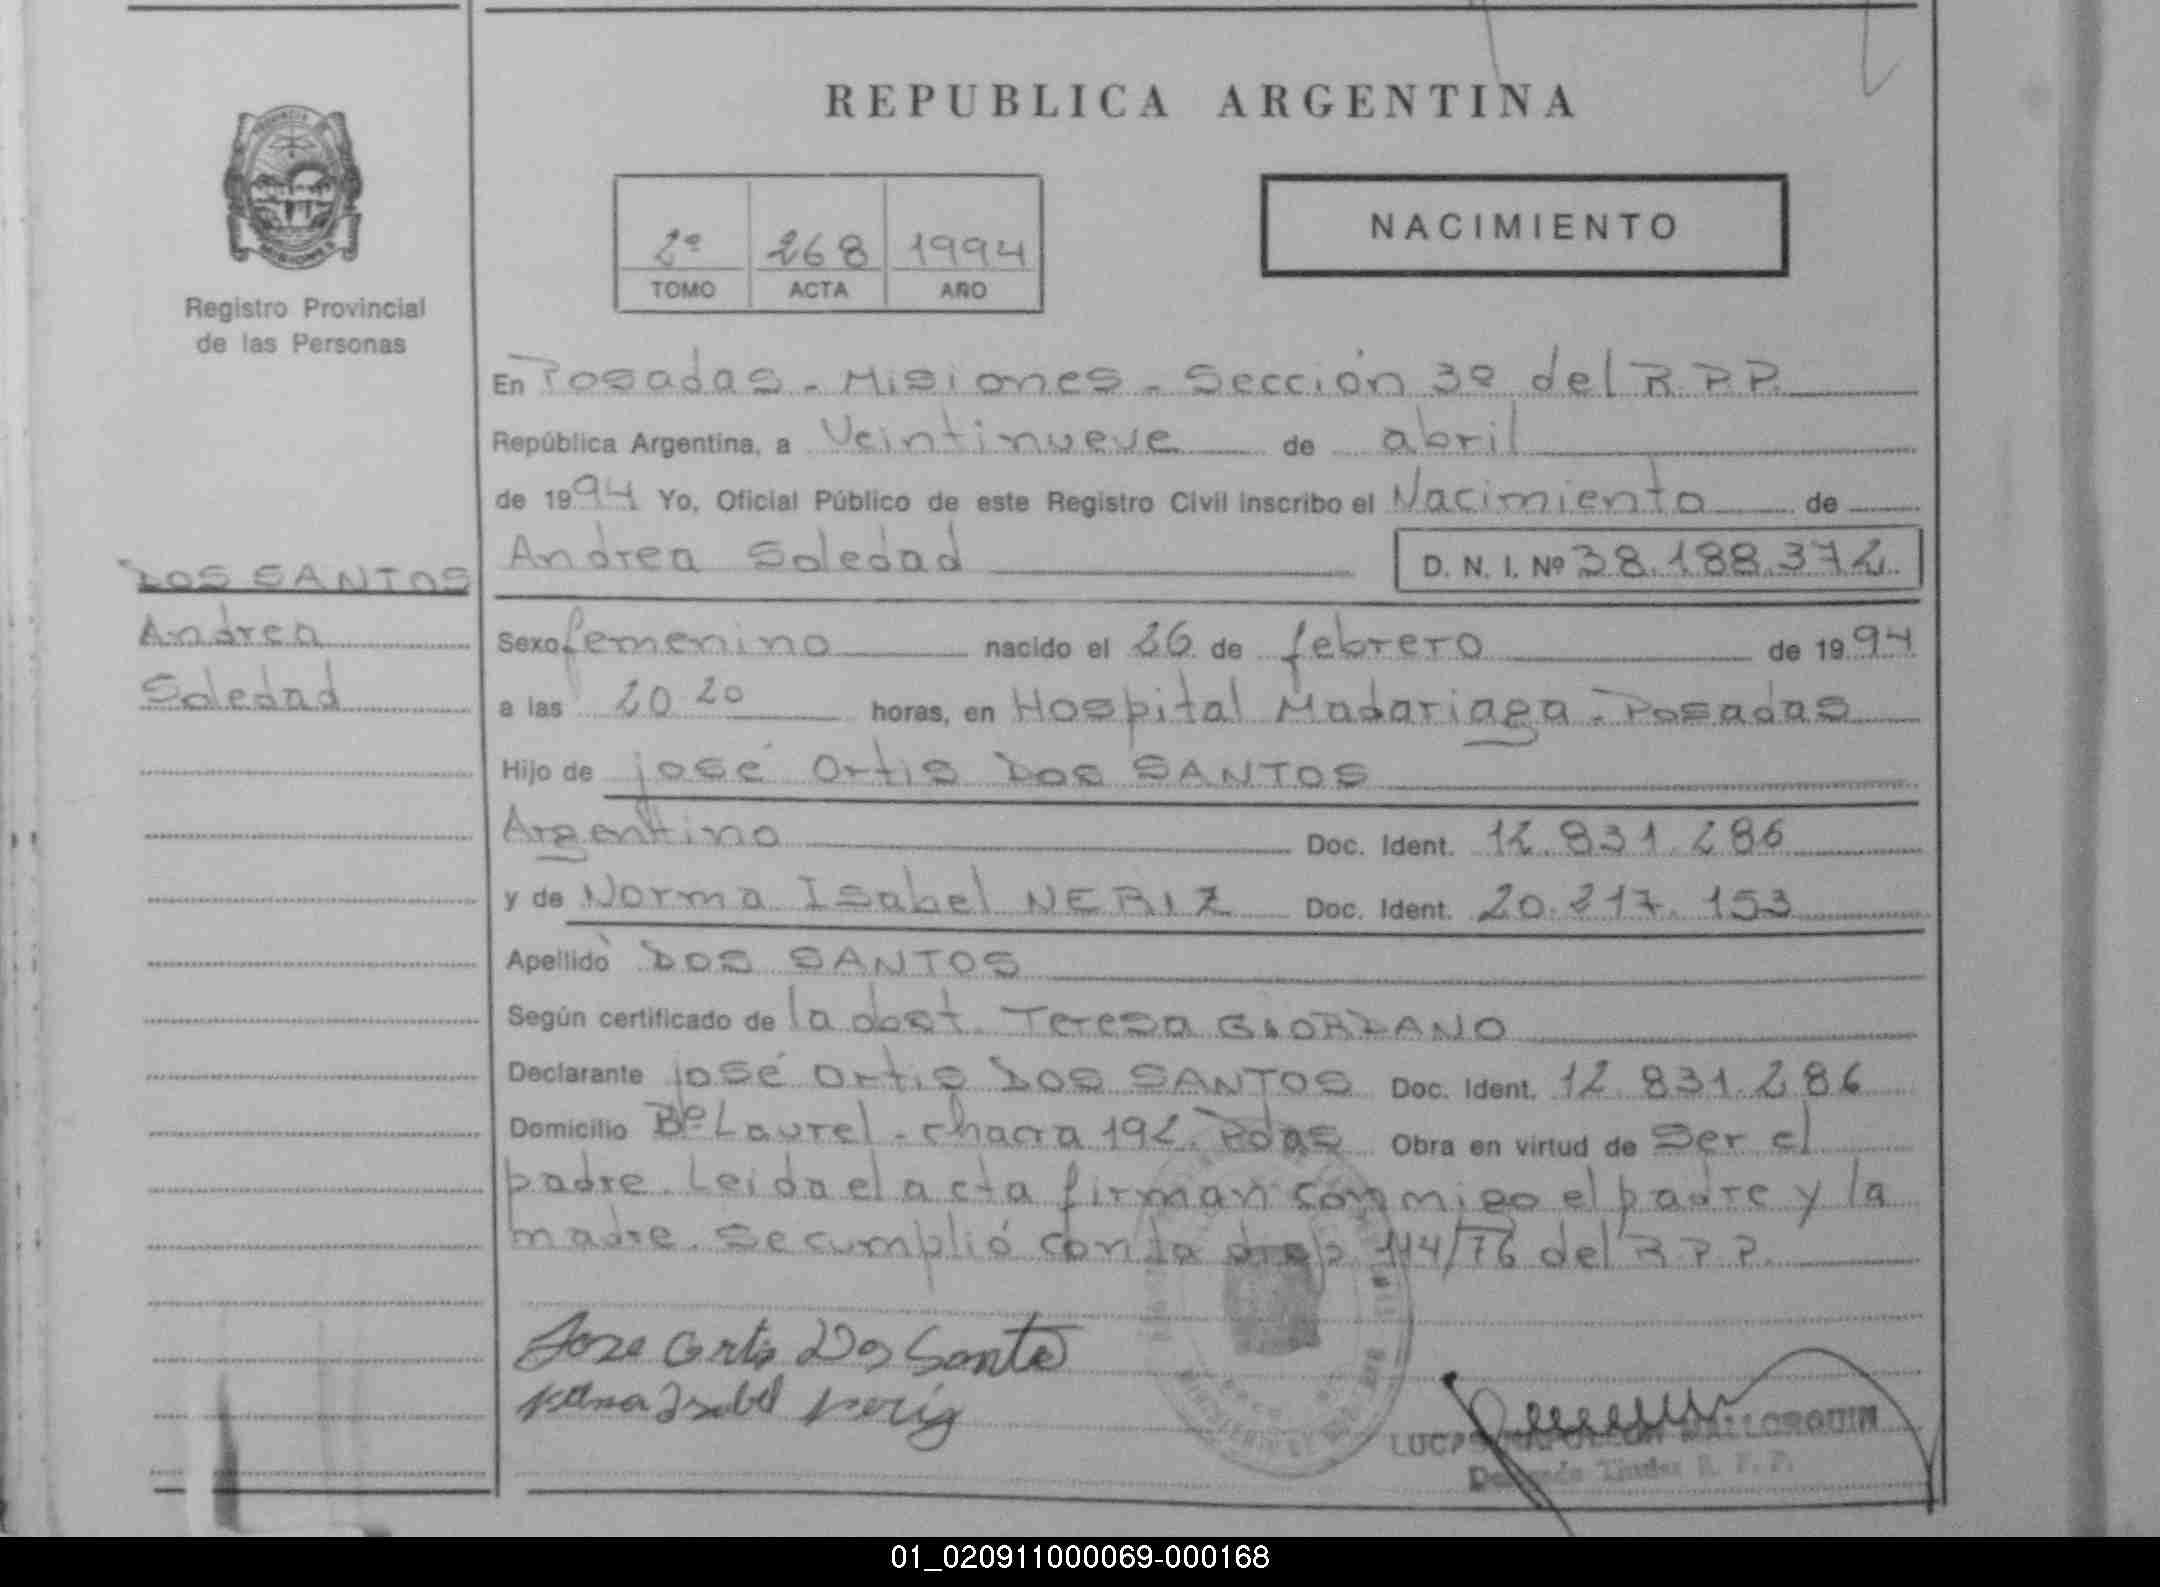 REPUBLICA ARGENTINA
NACIMIENTO
2º 268 1994
TOMO ACTA AÑO
Registro Provincial
de las Personas
DOS SANTOS
Andrea
Soledad
En Posadas - Misiones - Sección 3º del R.P.P.
República Argentina, a Veintinueve de abril
de 1994 Yo, Oficial Público de este Registro Civil inscribo el Nacimiento de
Andrea Soledad D. N. I. Nº 38.188.372
Sexo femenino nacido el 26 de febrero de 1994
a las 20 20 horas, en Hospital Madariaga - Posadas
Hijo de José Ortis DOS SANTOS
Argentino Doc. Ident. 12.831.286
y de Norma Isabel NERIZ Doc. Ident. 20.217.153
Apellido DOS SANTOS
Según certificado de la obst. Teresa GIORDANO
Declarante José Ortis DOS SANTOS Doc. Ident. 12.831.286
Domicilio Bº Laurel - chacra 192. Pdas Obra en virtud de ser el
padre. Leida el acta firman conmigo el padre y la
madre. Se cumplió con la disp. 114/76 del R.P.P.
Jose Ortis Dos Santo
Norma Isabel Neriz
LUCAS NAPOLEON MALLORQUIN
Delegado Titular R. P. P.
01_020911000069-000168